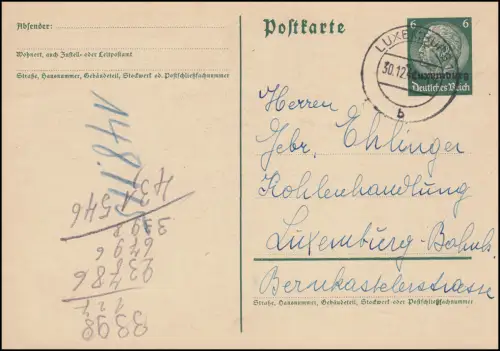 Absender:
Wohnort, auch Zustell- oder Leitpostamt
Straße, Hausnummer, Gebäudeteil, Stockwerk od. Postschließfachnummer
Postkarte
6 6
Luxemburg
Deutsches Reich
LUXEMBURG
30.12
b
Herren
Gebr. Ehlinger
Kohlenhandlung
Luxemburg-Bahnh.
Bernkastelerstrasse
Straße, Hausnummer, Gebäudeteil, Stockwerk oder Postschließfachnummer
3398